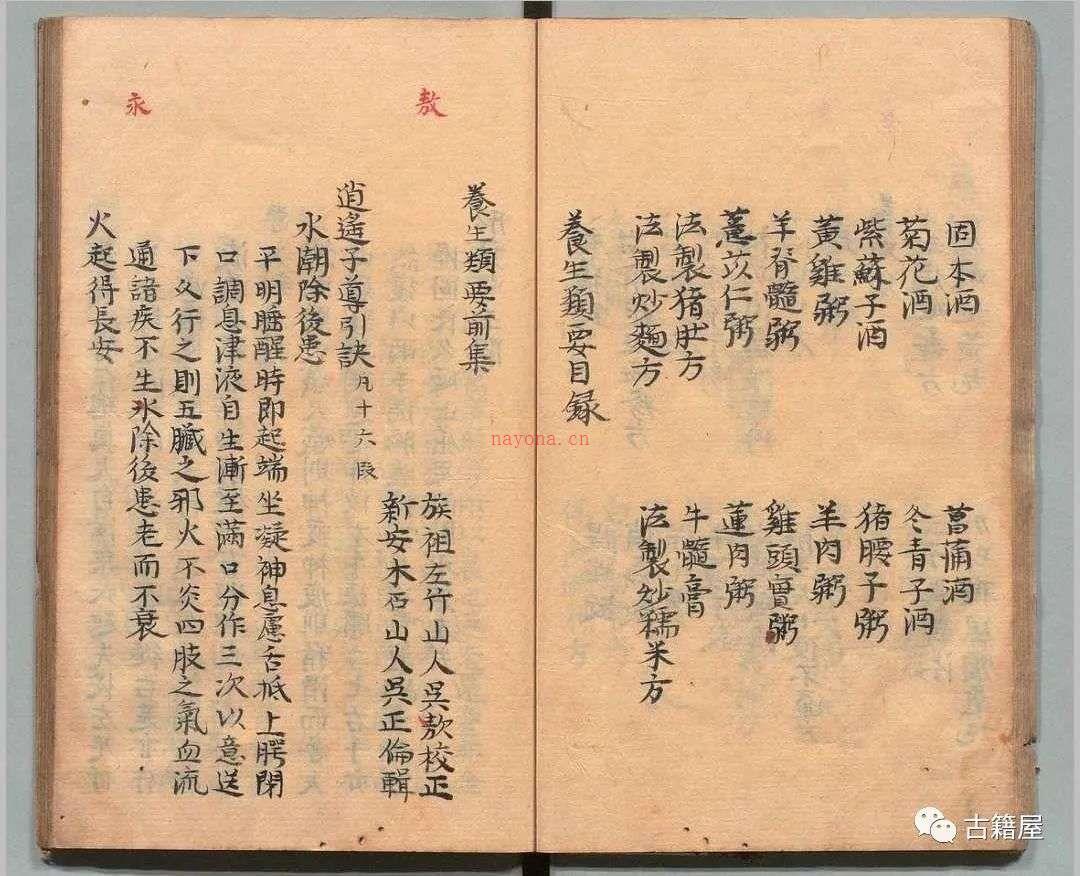 固本酒 菖蒲酒
菊花酒 冬青子酒
紫蘇子酒 猪腰子粥
黃雞粥 羊肉粥
羊脊髓粥 雞頭實粥
薏苡仁粥 蓮肉粥
法製猪肚方 牛髓膏
法製炒麵方 法製炒糯米方
養生類要目録
敖
永
養生類要前集
族祖左竹山人吳敖校正
新安木石山人吳正倫輯
逍遙子導引訣 凡十六叚
水潮除後患
平明睡醒時即起端坐凝神息慮舌抵上腭閉
口調息津液自生漸至滿口分作三次以意送
下久行之則五臟之邪火不炎四肢之氣血流
通諸疾不生永除後患老而不衰
火起得長安
nayona.cn
古籍屋